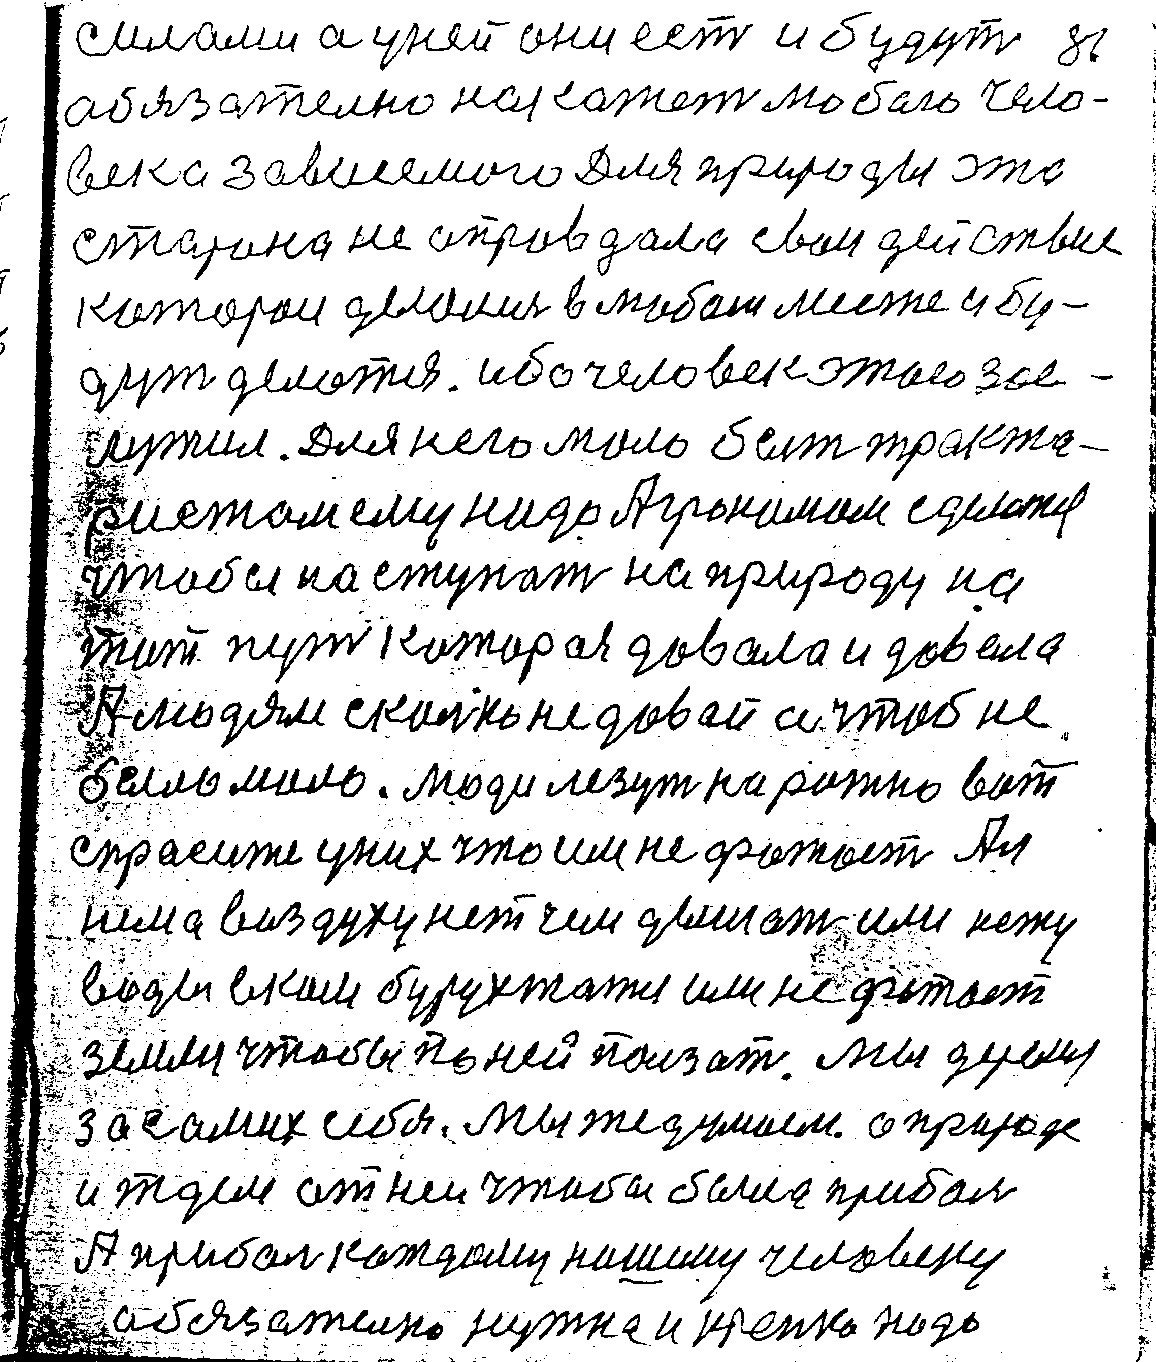 силами а уней они ест и будут 31
абязателно накажет любого чело-
века зависемого Для природы эта
старона не оправдала свои действие
которои делолия в любом месте и бу-
дут делатся. ибо человек этого зас-
лужил. Для него мало быт тракта-
ристом ему надо Агрономом сделатся
чтобы наступат на природу на
тот пут которая довала и довала
А людям сколко не довай а чтоб не
было мало. люди лезут на рожно вот
спросите у них что им не фатает Ал
нима воздуху нет чем дышат или нежу
воды вком бурухтатся или не фатает
земли чтобы по ней ползат. Мы думы
за самих себя. Мы же думаем о природе
и ждем от неи чтобы была прибол
А прибол каждому нашому человеку
обязателно нужна и крепко надо